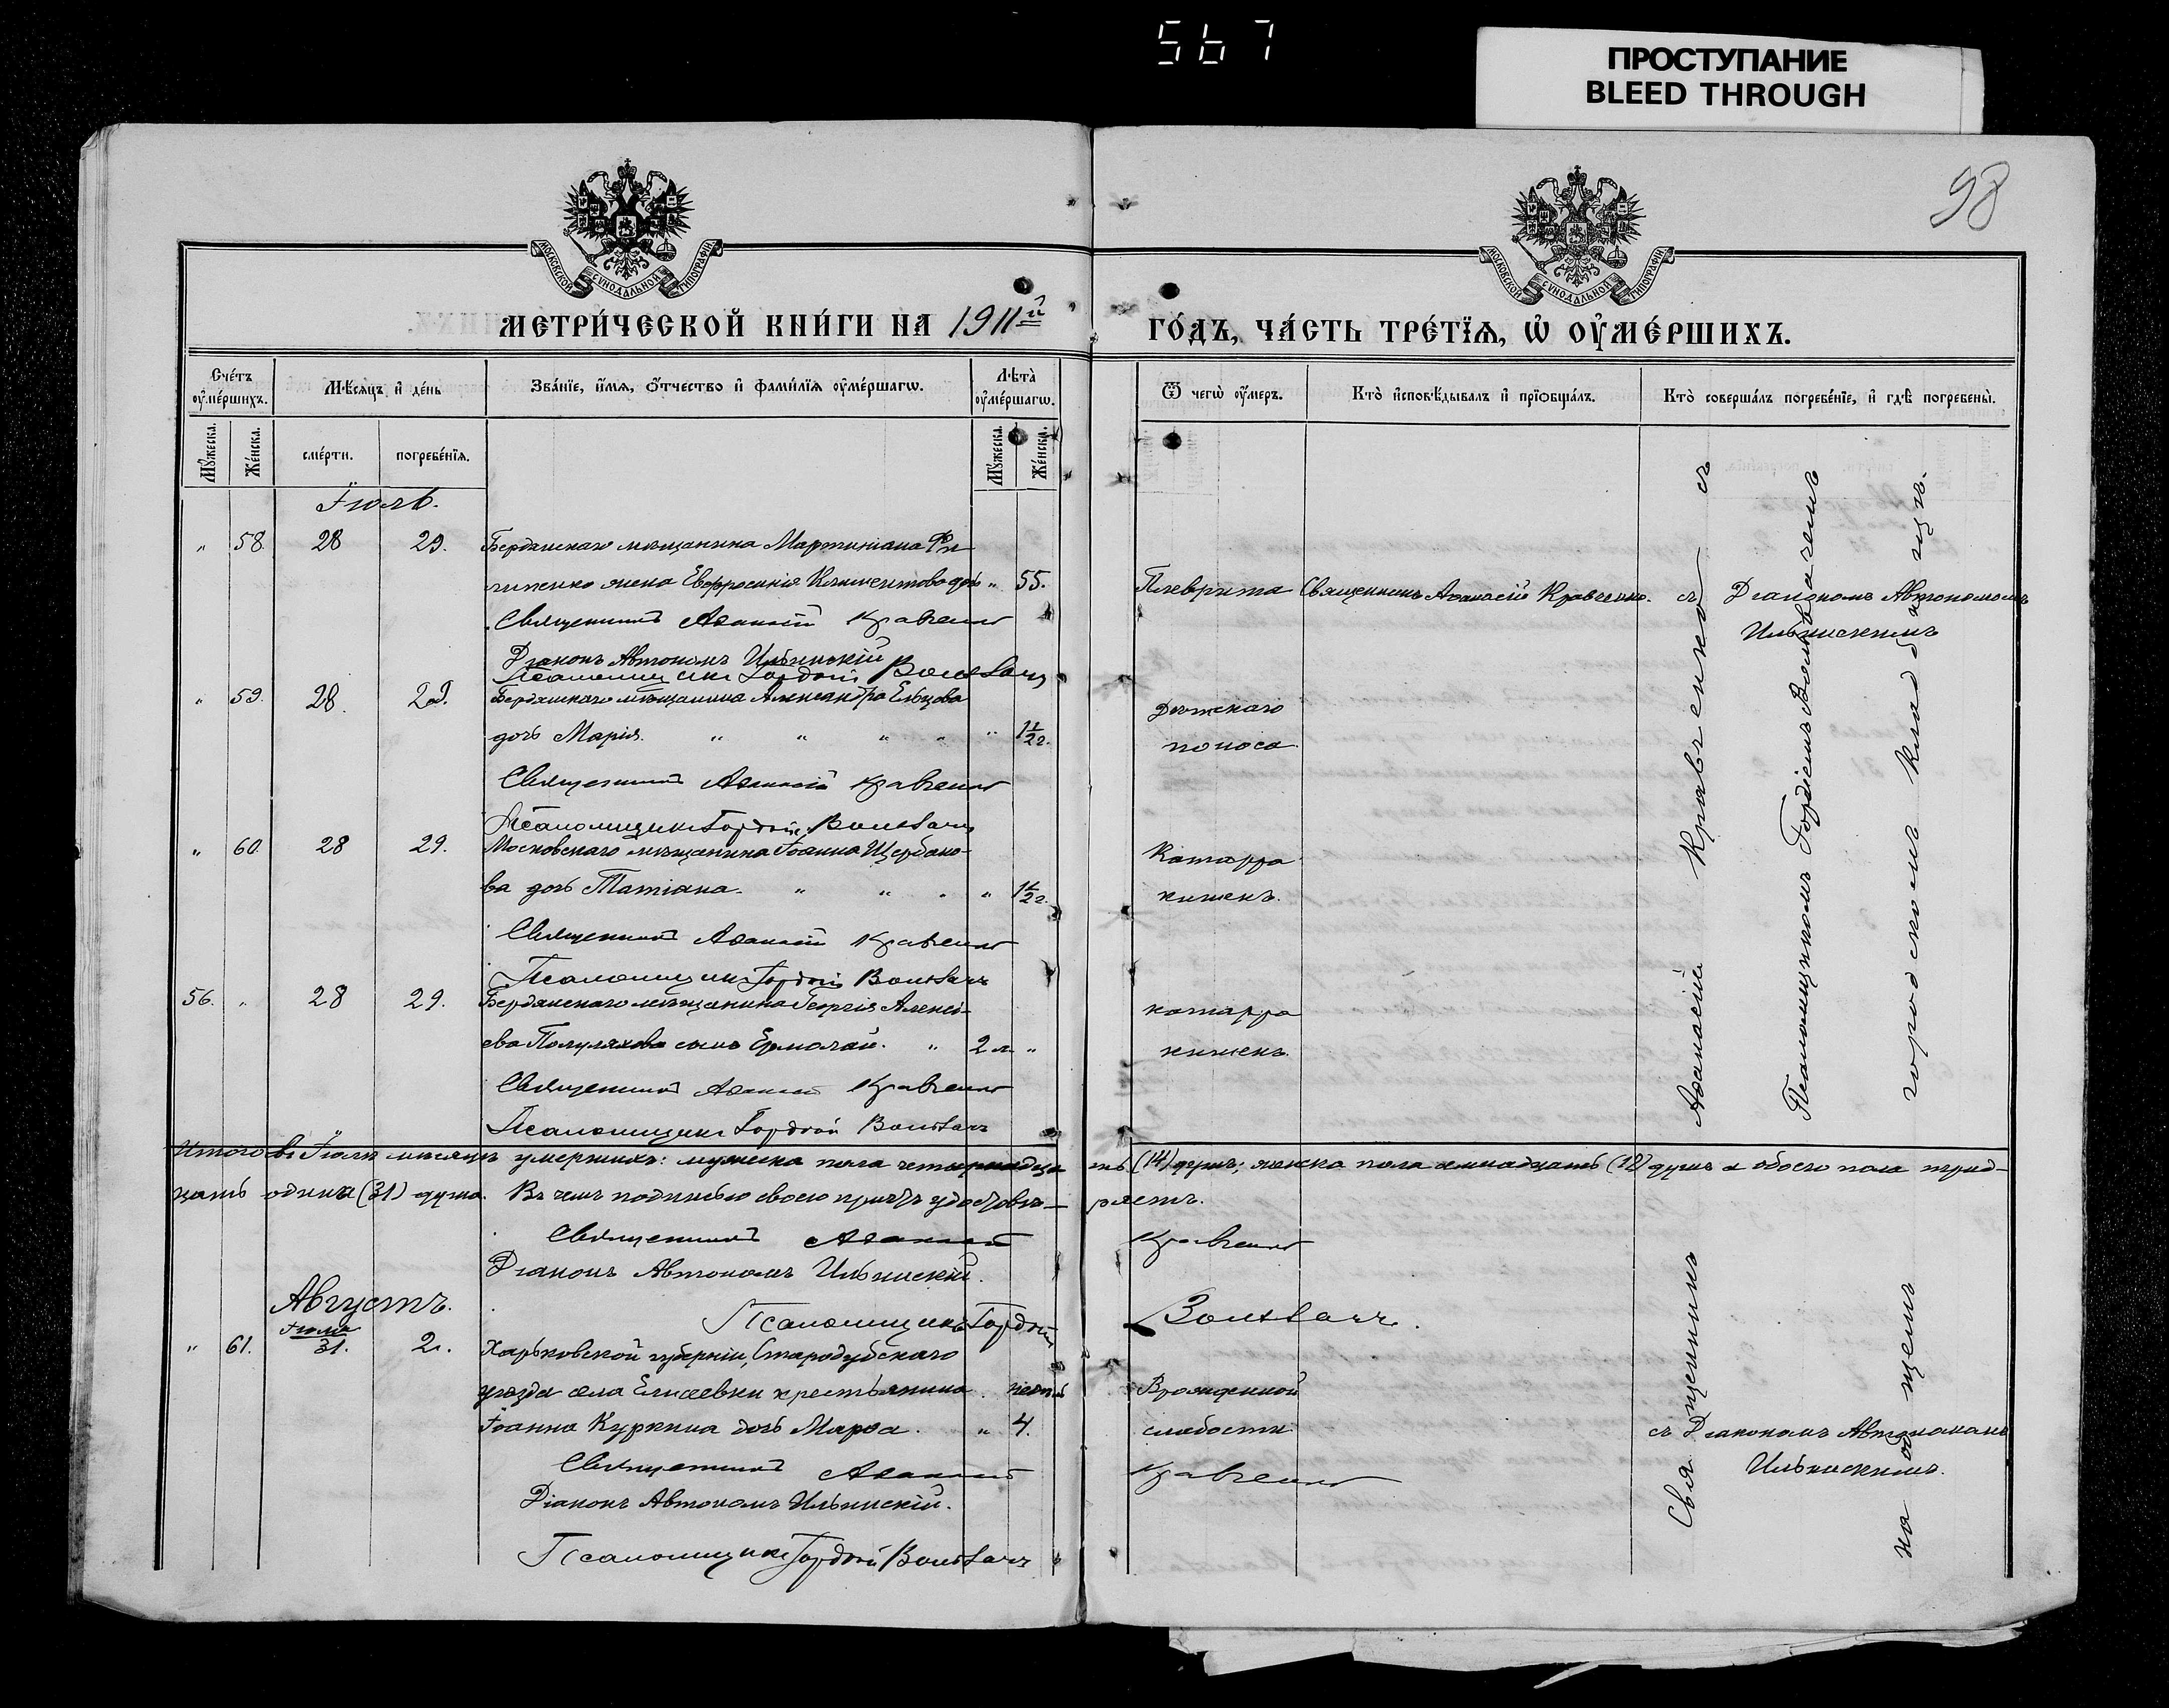 567
ПРОСТУПАНИЕ
BLEED THROUGH
98
МОСКОВСКОЙ СѴНОДАЛЬНОЙ ТИПОГРАФІИ
МОСКОВСКОЙ СѴНОДАЛЬНОЙ ТИПОГРАФІИ
МЕТРИ́ЧЕСКОЙ КНИ́ГИ НА 1911й
ГО́ДЪ, ЧА́СТЬ ТРЕ́ТЇѦ, Ѡ҆ ОУ҆МЕ́РШИХЪ.
Сче́тъ оу҆ме́ршихъ.
Мѣ́сяцъ и҆ де́нь
Зва́нїе, и҆́мѧ, ѻ҆́тчество и҆ фами́лїѧ оу҆ме́ршагѡ.
Лѣта̀ оу҆ме́ршагѡ.
Ѿ чегѡ̀ оу҆́меръ.
Кто̀ и҆сповѣ́дывалъ и҆ прїѻбща́лъ.
Кто̀ соверша́лъ погребе́нїе, и҆ гдѣ̀ погребены̀.
Мꙋ́жеска.
Же́нска.
сме́рти.
погребе́нїѧ.
Мꙋ́жеска.
Же́нска.
Іюль.
" 58. 28 29. Бердянскаго мѣщанина Мартиніана
жена Евфросинія Климентова дочь " 55.
Плеврита Священникъ Аѳанасій Кравченко. съ Діакономъ Автономомъ
Ильинскимъ
Священникъ Аѳанасій Кравченко
Діаконъ Автономъ Ильинскій
Псаломщикъ Гордѣй Волкбачъ
" 59. 28. 29. Бердянскаго мѣщанина Александра Ельцова
дочь Марія. " " " " " 1½ г.
Дѣтскаго
поноса.
Священникъ Аѳанасій Кравченко
Псаломщикъ Гордѣй
" 60. 28 29. Московскаго мѣщанина Іоанна Щербако-
ва дочь Татіана. " " " " 1½ г.
Катарра
кишекъ.
Священникъ Аѳанасій Кравченко
Псаломщикъ Гордѣй
56. " 28 29. Бердянскаго мѣщанина Георгія Алексѣ-
ева Полуляхова сынъ Ермолай. " 2 л. "
катарра
кишекъ.
Священникъ Аѳанасій Кравченко
Псаломщикъ Гордѣй
Аѳанасій Кравченко съ
Псаломщикомъ Гордѣемъ
городскомъ кладбищѣ.
Итого въ Іюлѣ мѣсяцѣ умершихъ: мужеска пола четырнадца-
ть (14) душъ; женска пола семнадцать (17) душъ а обоего пола трид-
цать одна (31) душа. Въ чемъ подписью своею причтъ удостовѣ-
ряетъ.
Священникъ Аѳанасій Кравченко
Діаконъ Автономъ Ильинскій.
Псаломщикъ Гордѣй
Августъ.
" 61. Іюля 31. 2. Харьковской губерніи, Стародубскаго
уѣзда села Елисеевки крестьянина
Іоанна Куркина дочь Марѳа. " 4.
Врожденной
слабости
съ Діакономъ Автономомъ
Ильинскимъ.
Священникъ Аѳанасій Кравченко
Діаконъ Автономъ Ильинскій.
Псаломщикъ Гордѣй
Священникъ
на